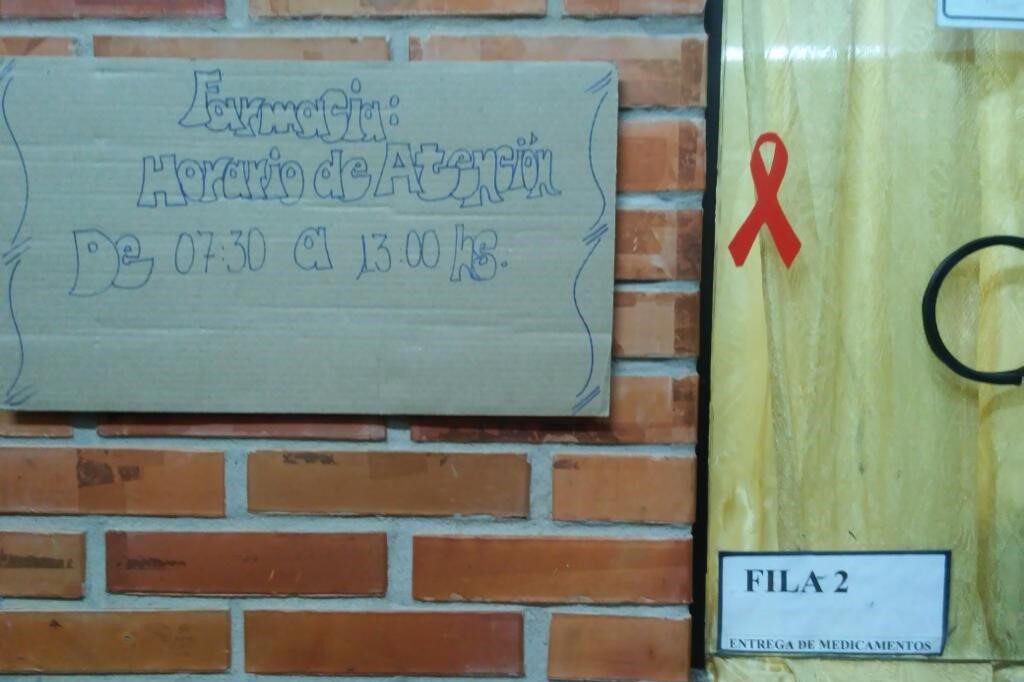 Farmacia:
Horario de Atención
De 07:30 a 13:00 hs.
FILA 2
ENTREGA DE MEDICAMENTOS